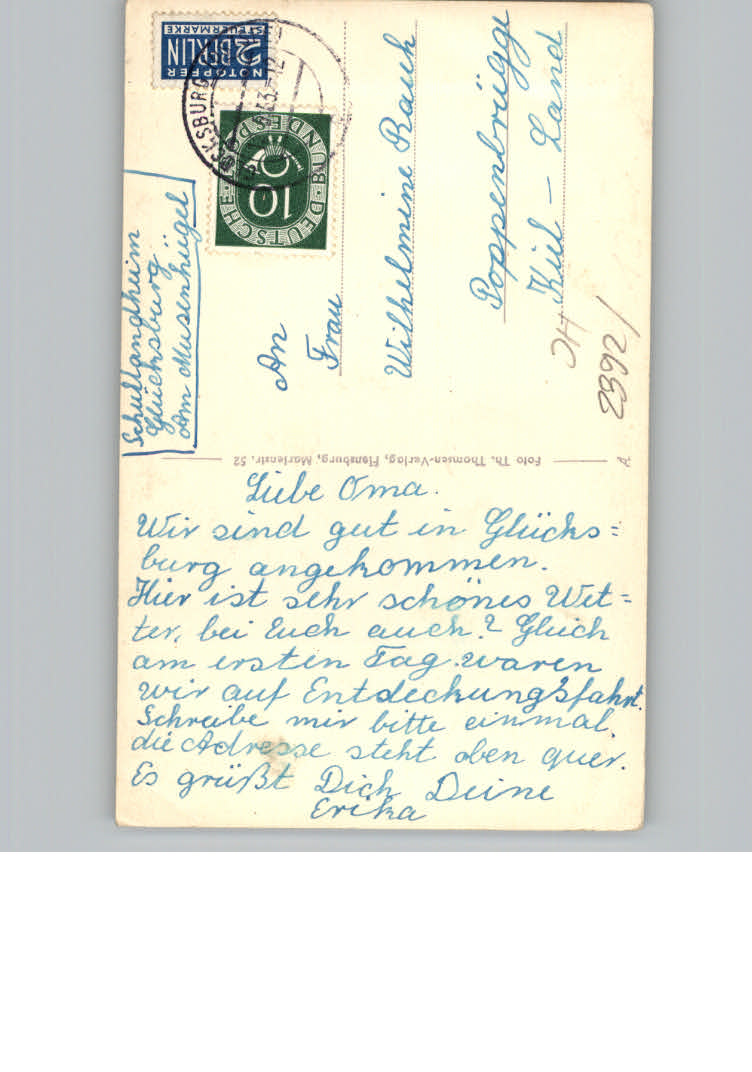 NOTOPFER
2 BERLIN
STEUERMARKE
DEUTSCHE BUNDESPOST
10
53.-12
Schullandheim
Glücksburg
Am Musenhügel
An
Frau
Wilhelmine Rauh
Poppenbrügge
Kiel - Land
2392/
Foto Th. Thomsen-Verlag, Flensburg, Marienstr. 52
Liebe Oma.
Wir sind gut in Glücks=
burg angekommen.
Hier ist sehr schönes Wet=
ter, bei Euch auch? Gleich
am ersten Tag waren
wir auf Entdeckungsfahrt.
Schreibe mir bitte einmal,
die Adresse steht oben quer.
Es grüßt Dich Deine
Erika